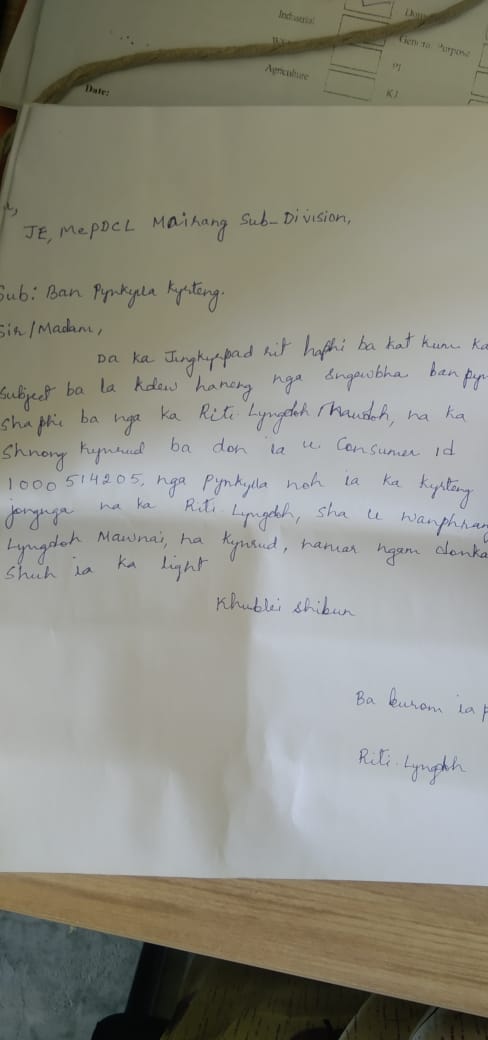 Industrial
General Purpose
Agriculture
Date:
JE, MePDCL Mairang Sub-Division,
Sub: Ban Pynkylla Kyrteng.
Sir/Madam,
Da ka Jingkyrpad rit haphi ba kat kum ka
Subject ba la kdew haneng nga sngewbha ban pyn
sha phi ba nga ka Riti Lyngdoh Mawdoh, na ka
Shnong Kynrud ba don ia u Consumer id
1000514205, nga pynkylla noh ia ka kyrteng
jongnga na ka Riti Lyngdoh, sha u Wanphrang
Lyngdoh Mawnai, na Kynrud, namar ngam donkam
shuh ia ka light
Khublei Shibun
Ba burom ia p
Riti Lyngdoh